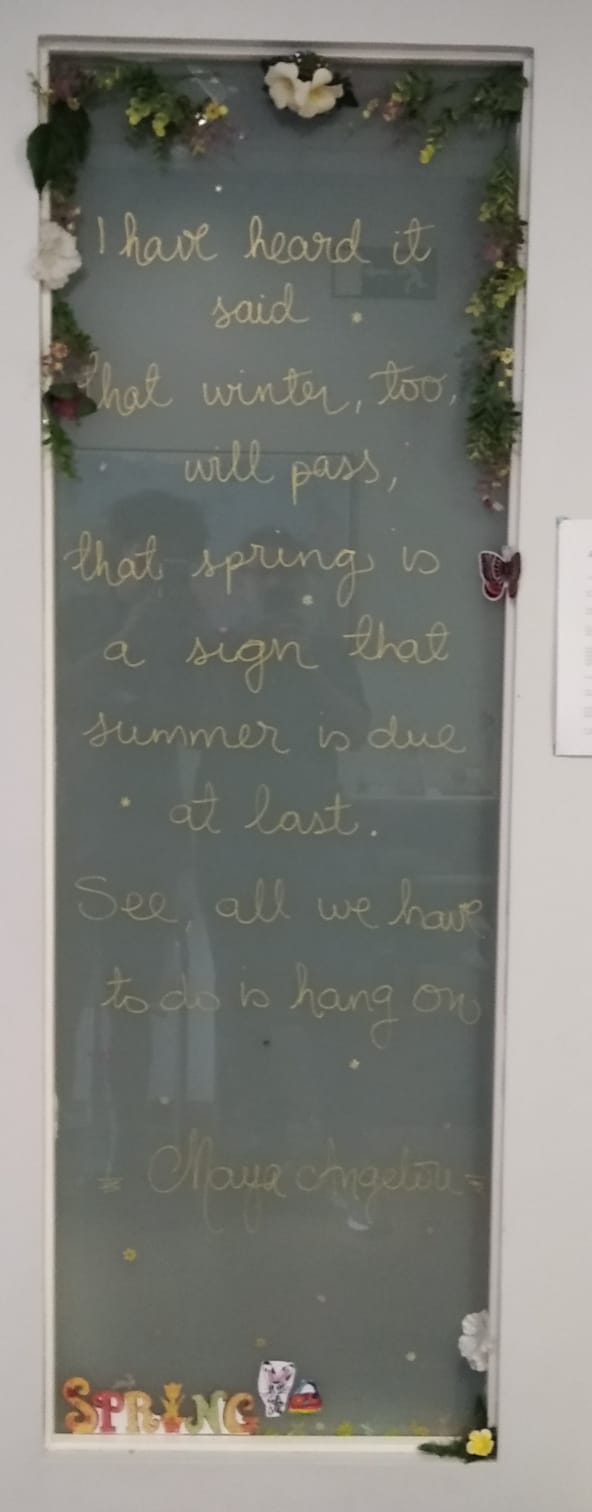 I have heard it
said
that winter, too,
will pass,
that spring is
a sign that
summer is due
at last.
See, all we have
to do is hang on
= Maya Angelou =
SPRING